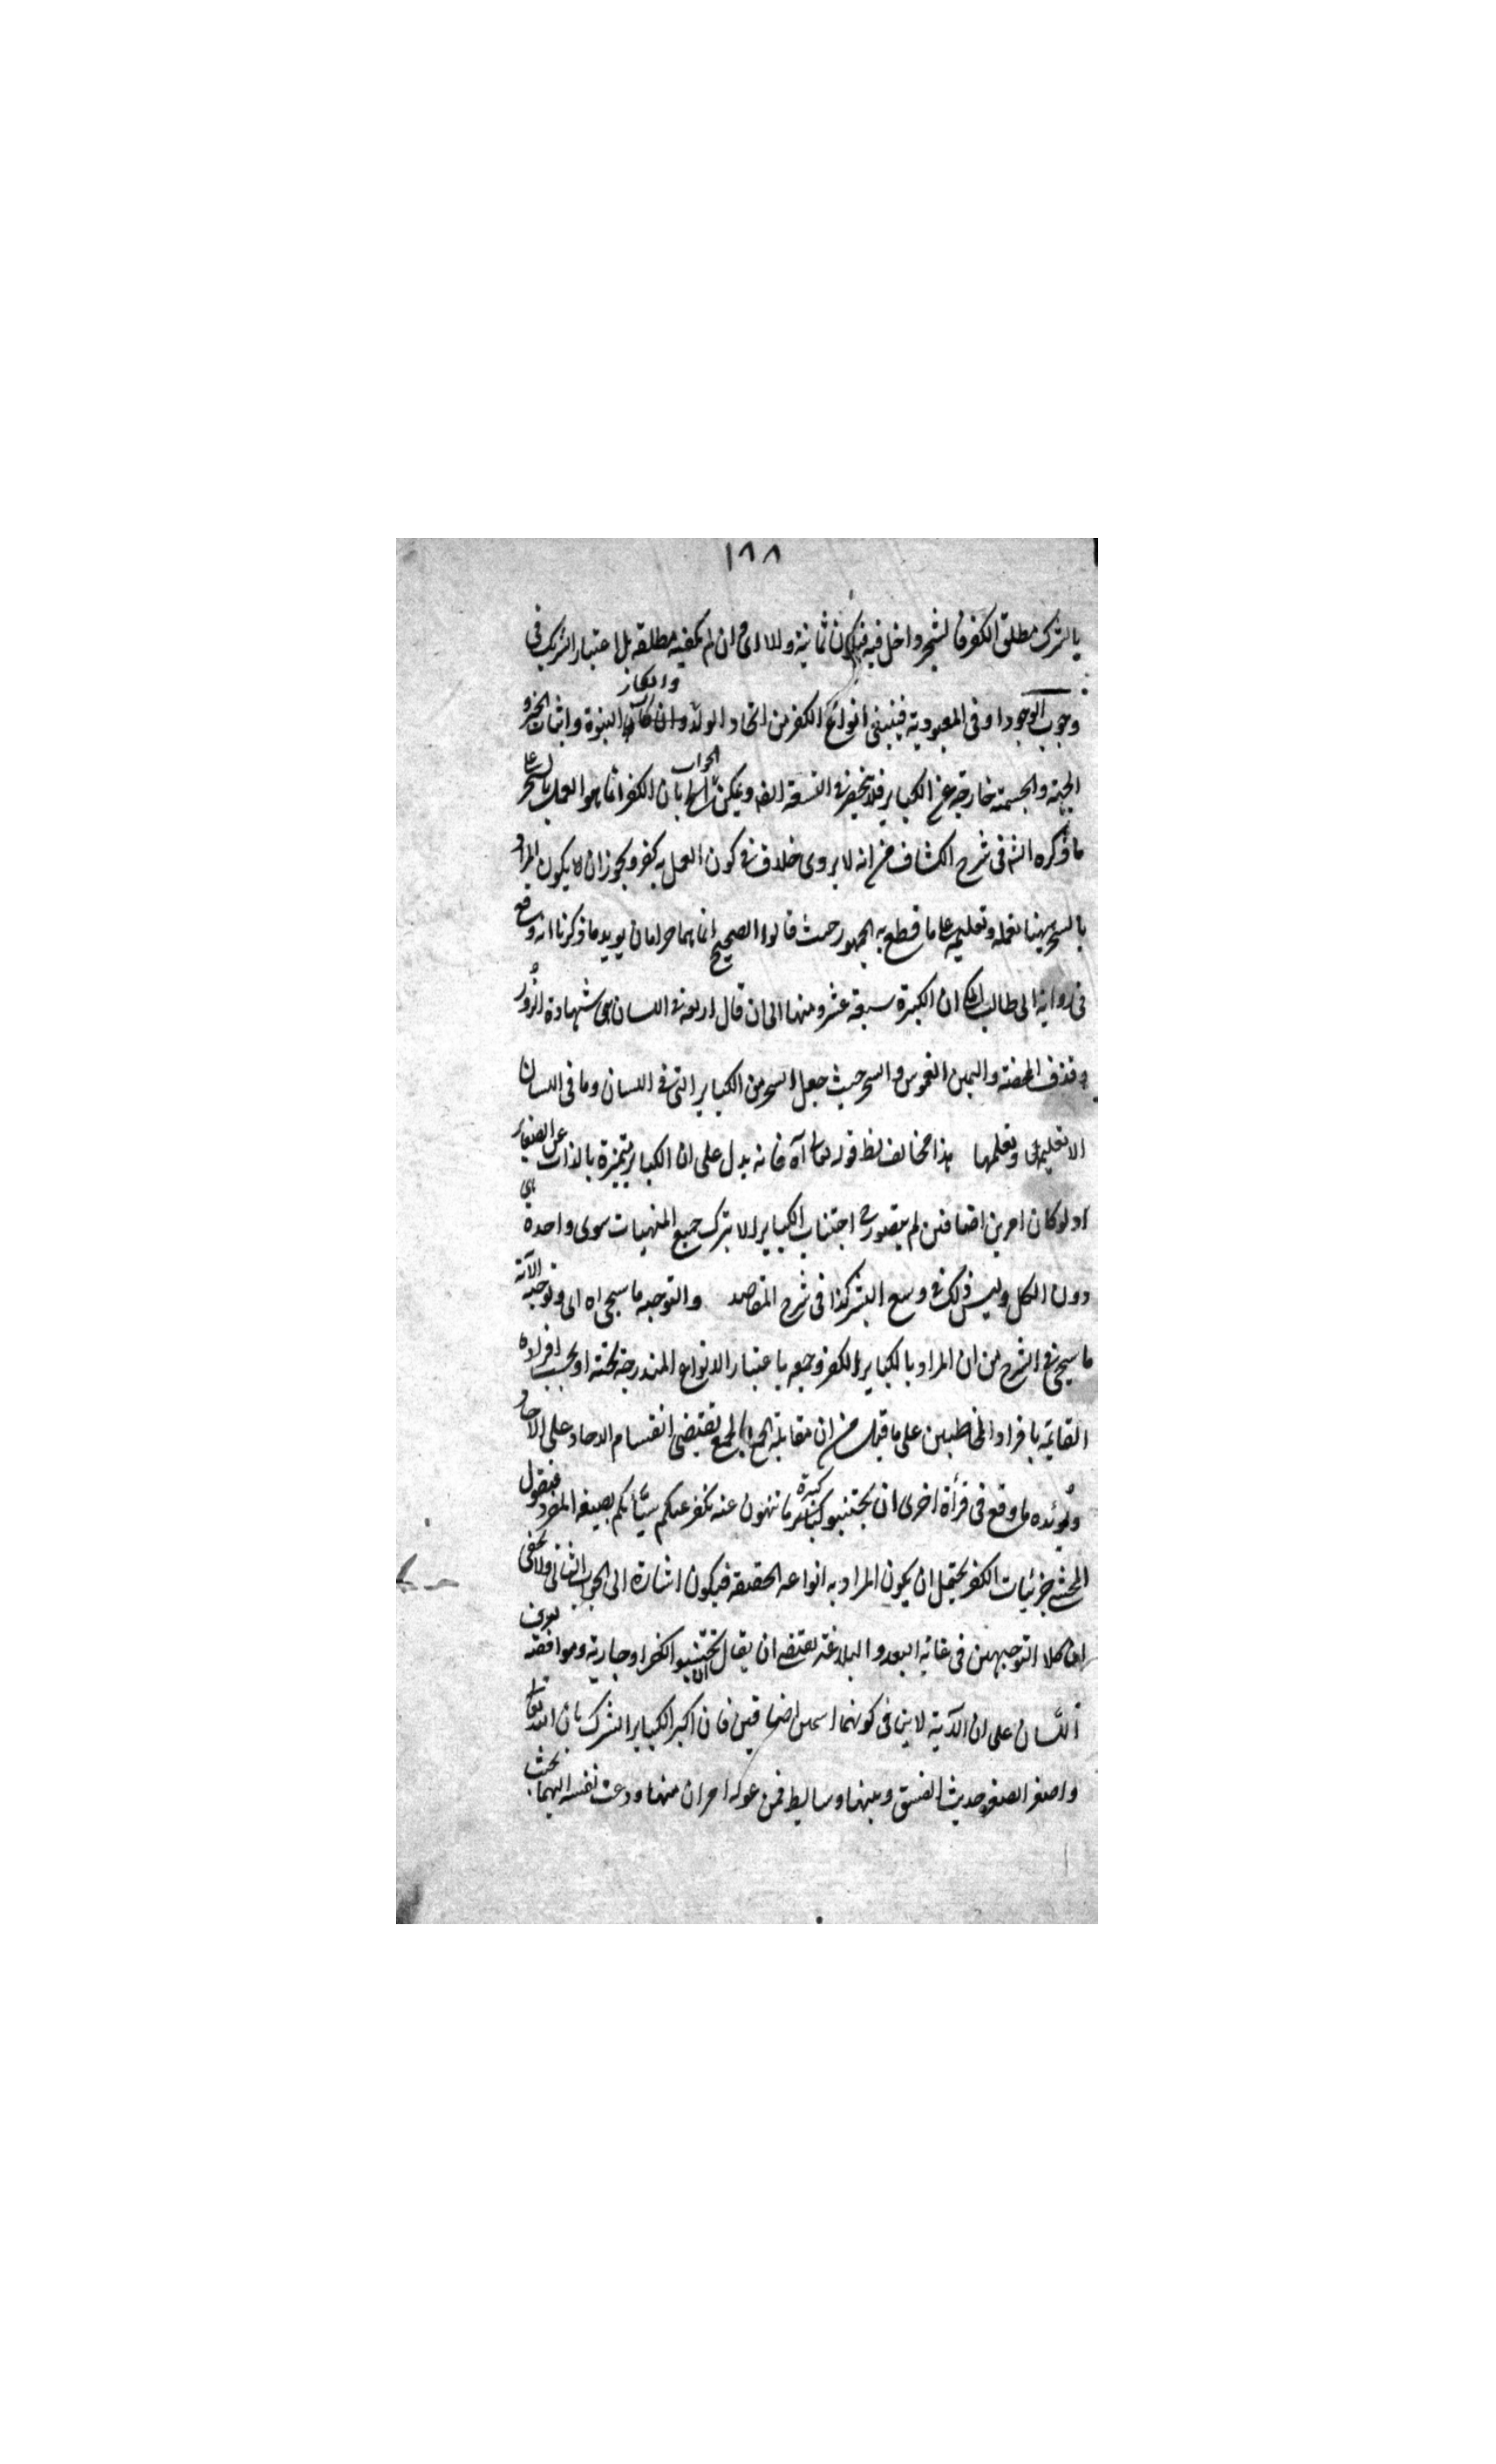 ١٨٨
بالشرك مطلق الكفر فالسحر داخل فيه فيكون ثمانية ولا ان لم يكفيه مطلقه بل اعتبار الشرك في
وجوب الوجود او في المعبودية فينبغى انواع الكفر من اتخاذ الولد وانكار النبوة واثبات الحيز و
الجهة والجسمية خارجة عن الكباير فلا تنحصر في التسعة ويمكن الجواب بان الكفر انما هو العمل بالسحر على
ما ذكره الش في شرح الكشاف من انه لا يروى خلاف في كون العمل به كفر ويجوز ان لا يكون المراد
بالسحر ههنا تعمله وتعليمه على ما قطع به الجمهور حيث قالوا الصحيح انهما حرامان يويد ما ذكرنا انه وقع
في رواية ابى طالب المكى ان الكبيرة سبعة عشر ومنها الى ان قال اربعة في اللسان هى شهادة الزور
وقذف المحصنة واليمين الغموس والسحر حيث جعل السحر من الكباير التى في اللسان وما في اللسان
الا تعليمها وتعلمها هذا مخالف لظ قوله تعالى آه فانه يدل على ان الكباير متميزة بالذات عن الصغاير
اذ لو كان امرين اضافين لم يتصور ح اجتناب الكباير الا بترك جميع المنهيات سوى واحدة هى
دون الكل وليس ذلك في وسع البشر كذا في شرح المقاصد والتوجيه ما سيجى اه اى وتوجيه الآية
ما سيجى في الشرح من ان المراد بالكباير الكفر وجمعه باعتبار الانواع المندرجة تحته او بحسب افراده
القائمة بافراد المخاطبين على ما قيل من ان مقابلة الجمع بالجمع تقتضى انقسام الاحاد على الاحاد
ويؤيده ما وقع في قرأة اخرى ان تجتنبوا كبيرة ما تنهون عنه نكفر عنكم سيّأتكم بصيغة المفرد فنقول
المحشى جزئيات الكفر يحتمل ان يكون المراد به انواعه الحقيقة فيكون اشارة الى الجواب الثانى ولا يخفى
ان كلا التوجيهين في غاية البعد والبلاغة يقتضى ان يقال ان تجتنبوا الكفر او جازية وموافقته لعرف
اللسان على ان الآية لا ينافى كونهما اسمين اضافيين فان اكبر الكباير الشرك بان الله تعالى
واصغر الصغر حديث النفس وبينهما وسايط فمن عوله امران منها ودعت نفسه اليهما بحيث